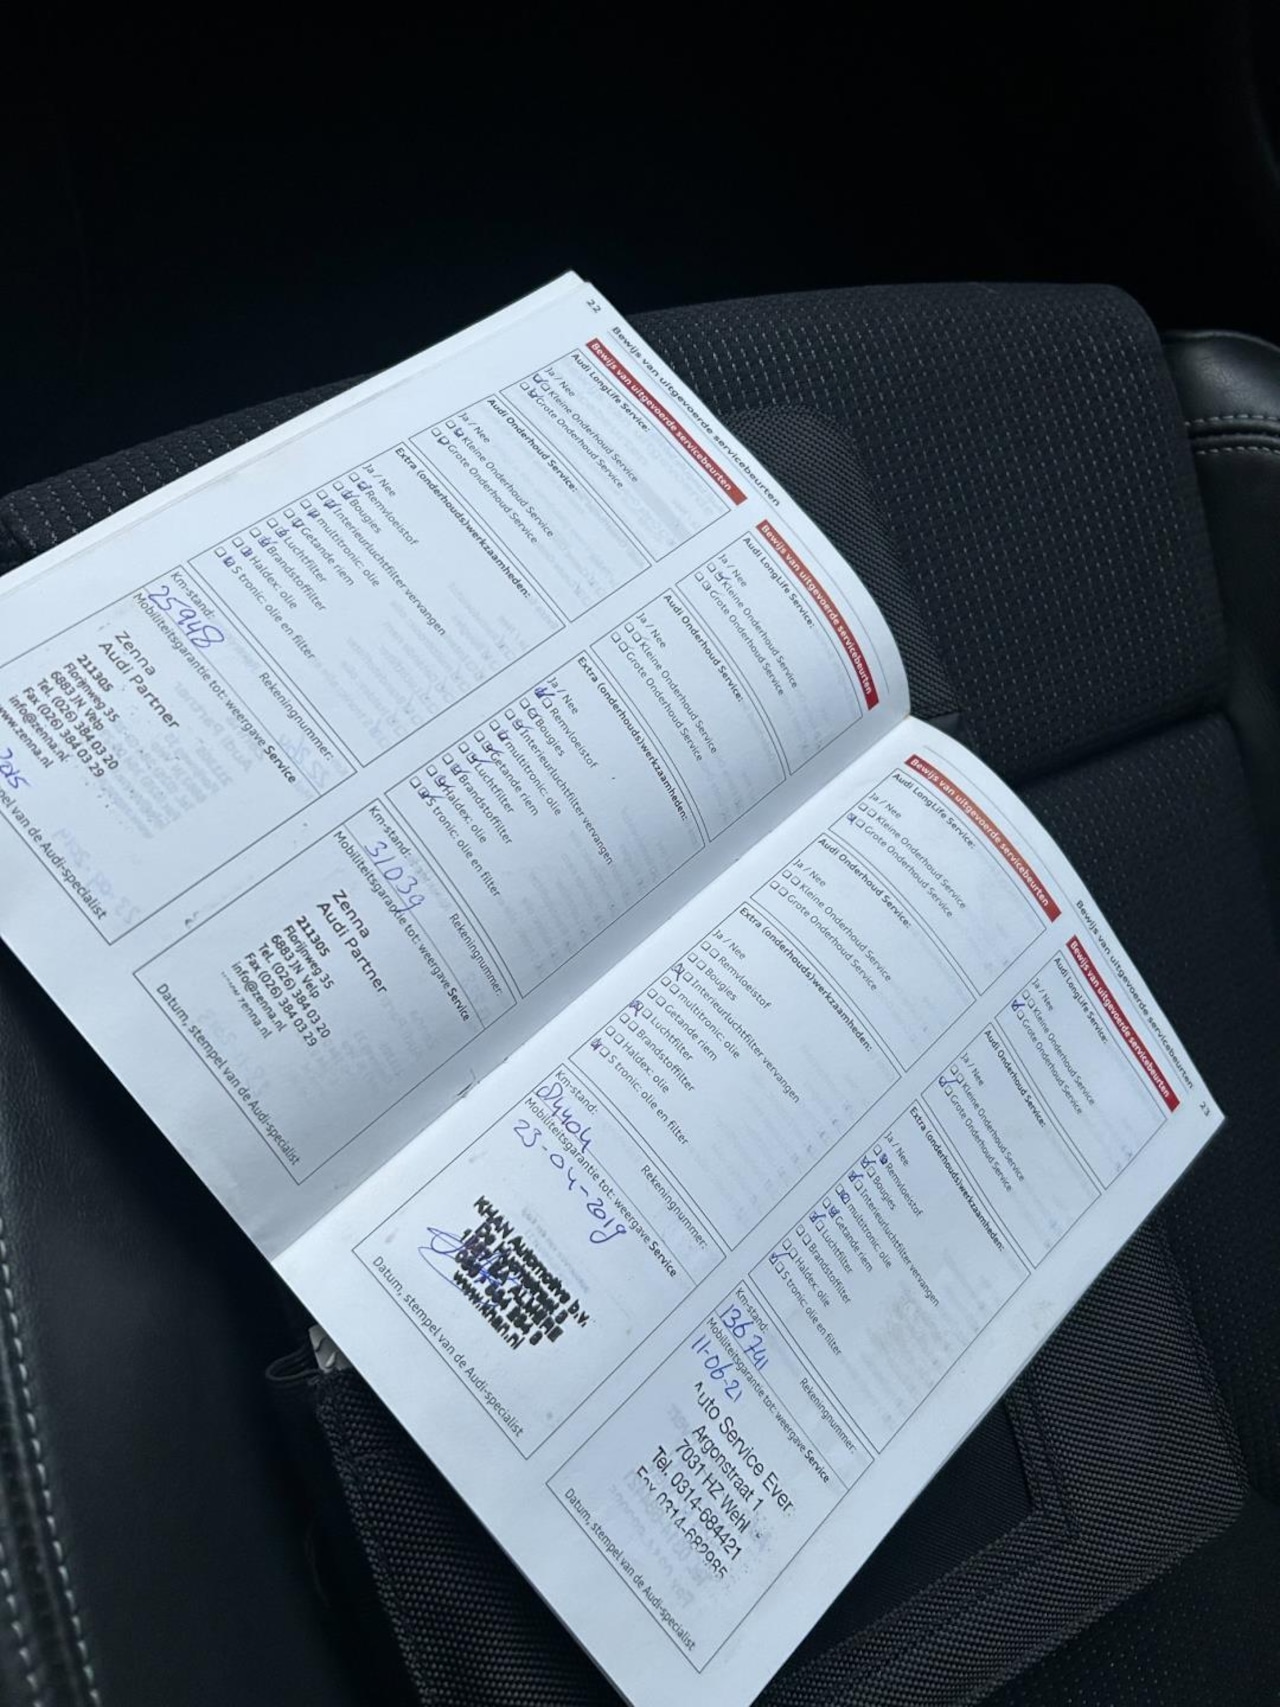 22
Bewijs van uitgevoerde servicebeurten
Bewijs van uitgevoerde servicebeurten
Audi LongLife Service:
Ja / Nee
Kleine Onderhoud Service
Grote Onderhoud Service
Audi Onderhoud Service:
Ja / Nee
Kleine Onderhoud Service
Grote Onderhoud Service
Extra (onderhouds)werkzaamheden:
Ja / Nee
Remvloeistof
Bougies
Interieurluchtfilter vervangen
multitronic: olie
Getande riem
Luchtfilter
Brandstoffilter
Haldex: olie
S tronic: olie en filter
Km-stand:
Rekeningnummer:
25948
Mobiliteitsgarantie tot: weergave Service
Zenna
Audi Partner
211305
Florijnweg 35
6883 JN Velp
Tel. (026) 384 03 20
Fax (026) 384 03 29
info@zenna.nl
www.zenna.nl
van de Audi-specialist
Bewijs van uitgevoerde servicebeurten
Audi LongLife Service:
Ja / Nee
Kleine Onderhoud Service
Grote Onderhoud Service
Audi Onderhoud Service:
Ja / Nee
Kleine Onderhoud Service
Grote Onderhoud Service
Extra (onderhouds)werkzaamheden:
Ja / Nee
Remvloeistof
Bougies
Interieurluchtfilter vervangen
multitronic: olie
Getande riem
Luchtfilter
Brandstoffilter
Haldex: olie
S tronic: olie en filter
Km-stand:
Rekeningnummer:
31039
Mobiliteitsgarantie tot: weergave Service
Zenna
Audi Partner
211305
Florijnweg 35
6883 JN Velp
Tel. (026) 384 03 20
Fax (026) 384 03 29
info@zenna.nl
zenna.nl
Datum, stempel van de Audi-specialist
Bewijs van uitgevoerde servicebeurten
23
Bewijs van uitgevoerde servicebeurten
Audi LongLife Service:
Ja / Nee
Kleine Onderhoud Service
Grote Onderhoud Service
Audi Onderhoud Service:
Ja / Nee
Kleine Onderhoud Service
Grote Onderhoud Service
Extra (onderhouds)werkzaamheden:
Ja / Nee
Remvloeistof
Bougies
Interieurluchtfilter vervangen
multitronic: olie
Getande riem
Luchtfilter
Brandstoffilter
Haldex: olie
S tronic: olie en filter
Km-stand:
Rekeningnummer:
84404
Mobiliteitsgarantie tot: weergave Service
23-04-2019
KHAN Automotive b.v.
www.khan.nl
Datum, stempel van de Audi-specialist
Bewijs van uitgevoerde servicebeurten
Audi LongLife Service:
Ja / Nee
Kleine Onderhoud Service
Grote Onderhoud Service
Audi Onderhoud Service:
Ja / Nee
Kleine Onderhoud Service
Grote Onderhoud Service
Extra (onderhouds)werkzaamheden:
Ja / Nee
Remvloeistof
Bougies
Interieurluchtfilter vervangen
multitronic: olie
Getande riem
Luchtfilter
Brandstoffilter
Haldex: olie
S tronic: olie en filter
Km-stand:
Rekeningnummer:
136741
Mobiliteitsgarantie tot: weergave Service
11-06-21
Auto Service Ever
Argonstraat 1
7031 HZ Wehl
Tel. 0314-684421
Fax 0314-682985
Datum, stempel van de Audi-specialist